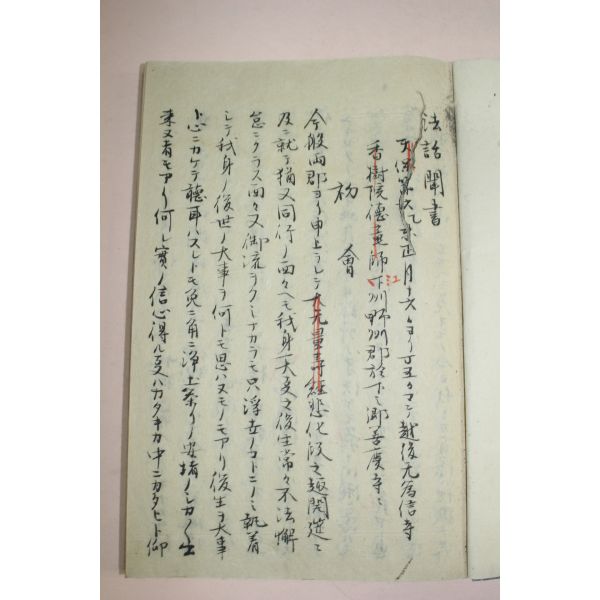 法話聞書
天保第六乙未正月十六ヨリ丁五日マテ越後无為信寺
香樹院徳龍師江州野州郡於下之郷善慶寺ニ
初會
今般両郡ヨリ申上ラレテ大无量寿経悲化段之趣開莚ニ
及ニ就テ猶又同行ノ面々ヘモ我身一大叓之後生常々不法懈
怠ニクラス面々又御流ラクミナカラモ只浮世ノコトニノミ執着
シテ我身ノ後世ノ大事ヲ何トモ思ハヌモノモアリ後生ヲ大事
ト心ニカケテ聴聞ハスレトモ兎ニ角ニ浄土参リノ安堵ノシカノ出
来ヌ者モアリ何レ實ノ信心得ル叓ハカタキカ中ニカタヒト仰